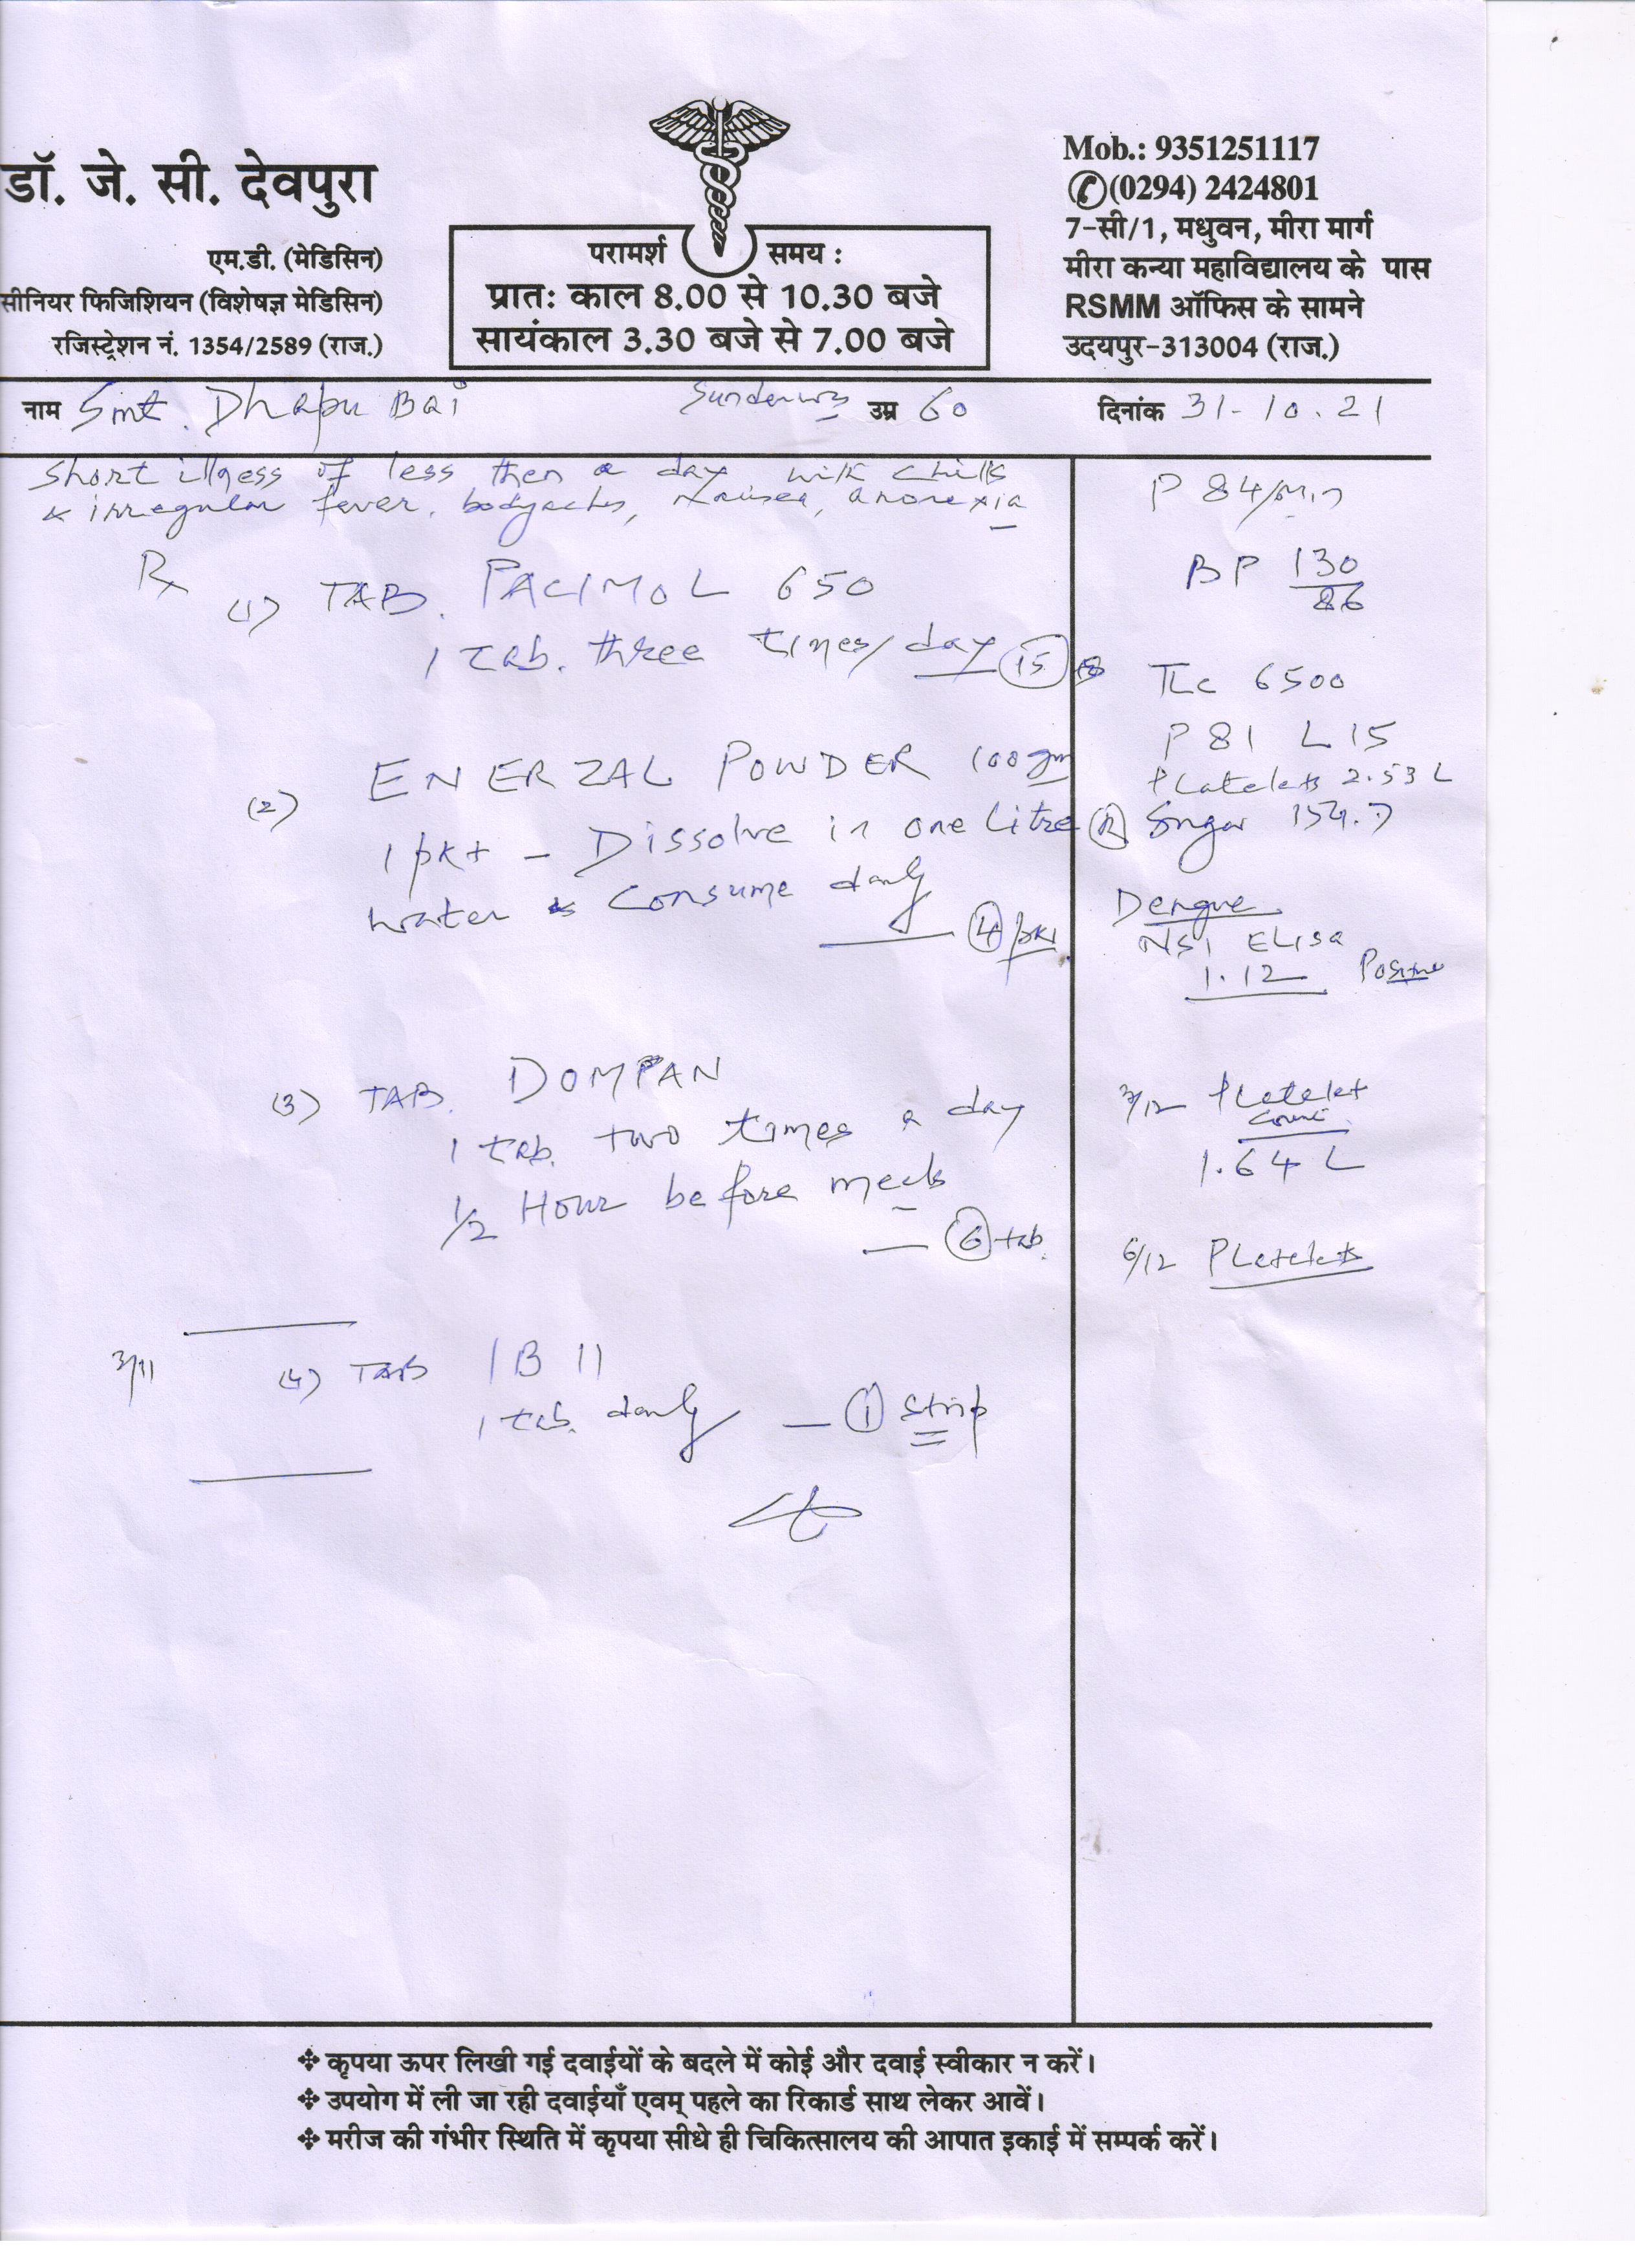 डॉ. जे. सी. देवपुरा
एम.डी. (मेडिसिन)
सीनियर फिजिशियन (विशेषज्ञ मेडिसिन)
रजिस्ट्रेशन नं. 1354/2589 (राज.)
परामर्श समय :
प्रातः काल 8.00 से 10.30 बजे
सायंकाल 3.30 बजे से 7.00 बजे
Mob.: 9351251117
(0294) 2424801
7-सी/1, मधुवन, मीरा मार्ग
मीरा कन्या महाविद्यालय के पास
RSMM ऑफिस के सामने
उदयपुर-313004 (राज.)
नाम Smt. Dhapu Bai उम्र 60 दिनांक 31-10.21
Short illness of less then a day with chills
& irregular fever, bodyaches, nausea, anorexia
Rx
(1) TAB. PACIMOL 650
1 tab. three times/day 15
(2) ENERZAL POWDER 100gm
1 pkt - Dissolve in one litre
water & consume daily
4 pkt
(3) TAB. DOMPAN
1 tab. two times a day
1/2 Hour before meals
6 tab.
3/11 (4) TAB
1 tab. daily - 1 strip
P 84/min
BP 130/86
TLC 6500
P 81 L 15
Platelets 2.53 L
R Sugar
Dengue
NS1 ELISA
1.12 Positive
3/12 Platelet
count
1.64 L
6/12 Platelets
कृपया ऊपर लिखी गई दवाईयों के बदले में कोई और दवाई स्वीकार न करें।
उपयोग में ली जा रही दवाईयाँ एवम् पहले का रिकार्ड साथ लेकर आवें।
मरीज की गंभीर स्थिति में कृपया सीधे ही चिकित्सालय की आपात इकाई में सम्पर्क करें।